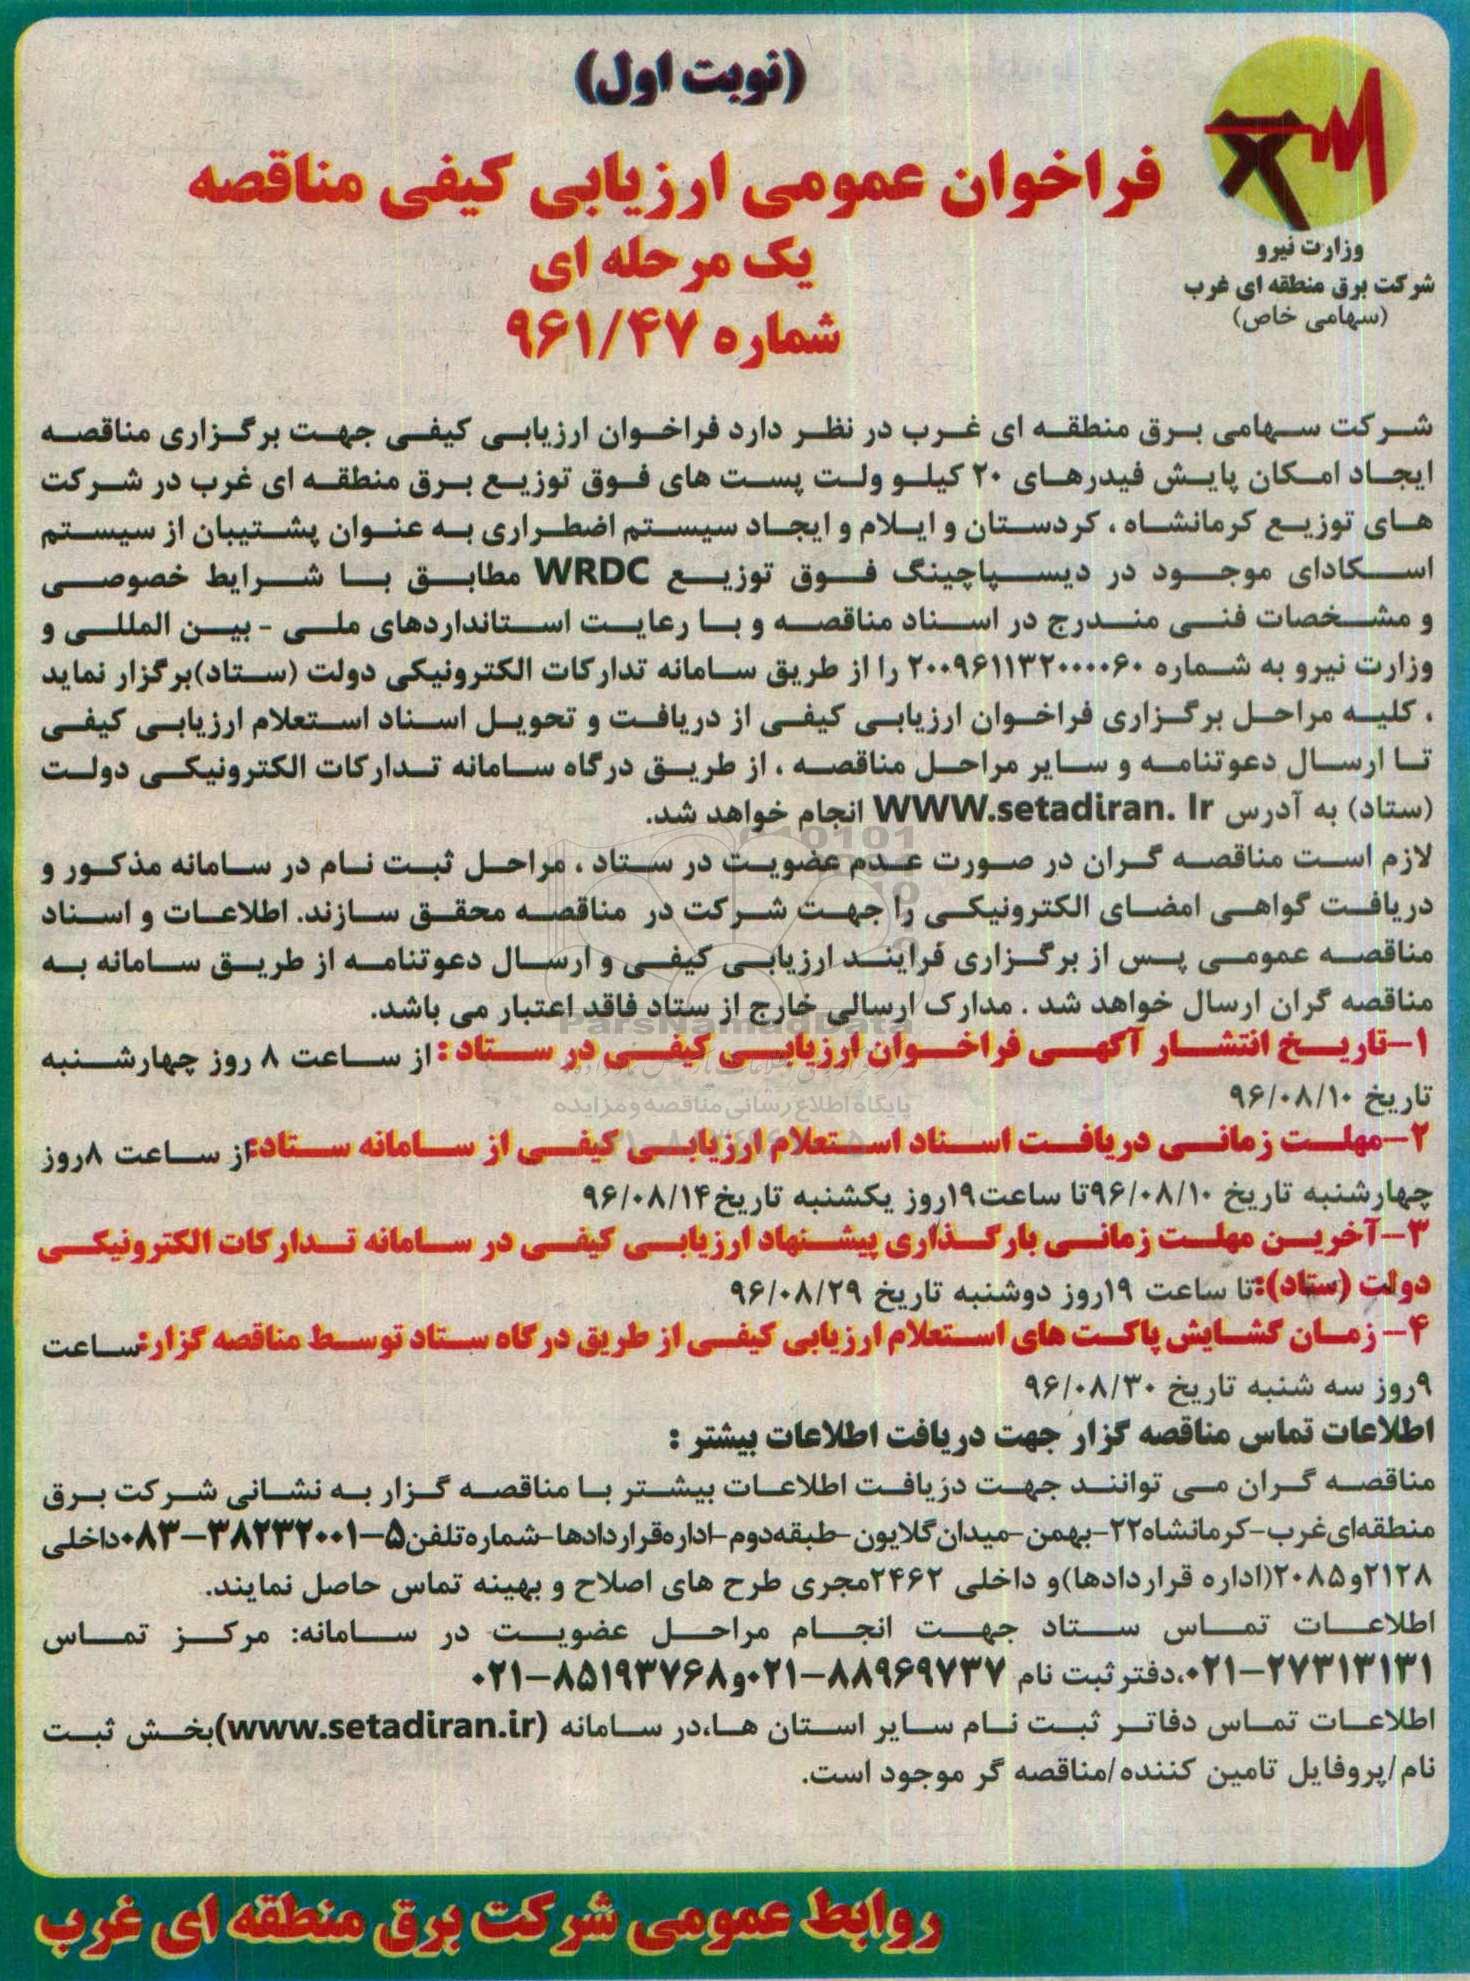 (نوبت اول)
فراخوان عمومی ارزیابی کیفی مناقصه
یک مرحله ای
شماره ۹۶۱/۴۷
وزارت نیرو
شرکت برق منطقه ای غرب
(سهامی خاص)
شرکت سهامی برق منطقه ای غرب در نظر دارد فراخوان ارزیابی کیفی جهت برگزاری مناقصه
ایجاد امکان پایش فیدرهای ۲۰ کیلو ولت پست های فوق توزیع برق منطقه ای غرب در شرکت
های توزیع کرمانشاه ، کردستان و ایلام و ایجاد سیستم اضطراری به عنوان پشتیبان از سیستم
اسکادای موجود در دیسپاچینگ فوق توزیع WRDC مطابق با شرایط خصوصی
و مشخصات فنی مندرج در اسناد مناقصه و با رعایت استانداردهای ملی - بین المللی و
وزارت نیرو به شماره ۲۰۰۹۶۱۱۳۲۰۰۰۰۶۰ را از طریق سامانه تدارکات الکترونیکی دولت (ستاد)برگزار نماید
، کلیه مراحل برگزاری فراخوان ارزیابی کیفی از دریافت و تحویل اسناد استعلام ارزیابی کیفی
تا ارسال دعوتنامه و سایر مراحل مناقصه ، از طریق درگاه سامانه تدارکات الکترونیکی دولت
(ستاد) به آدرس WWW.setadiran. Ir انجام خواهد شد.
لازم است مناقصه گران در صورت عدم عضویت در ستاد ، مراحل ثبت نام در سامانه مذکور و
دریافت گواهی امضای الکترونیکی را جهت شرکت در مناقصه محقق سازند. اطلاعات و اسناد
مناقصه عمومی پس از برگزاری فرایند ارزیابی کیفی و ارسال دعوتنامه از طریق سامانه به
مناقصه گران ارسال خواهد شد . مدارک ارسالی خارج از ستاد فاقد اعتبار می باشد.
ParsNamadData
۱-تاریخ انتشار آگهی فراخوان ارزیابی کیفی در ستاد : از ساعت ۸ روز چهارشنبه
تاریخ ۹۶/۰۸/۱۰
پایگاه اطلاع رسانی مناقصه و مزایده
۲-مهلت زمانی دریافت اسناد استعلام ارزیابی کیفی از سامانه ستاد:از ساعت ۸روز
چهارشنبه تاریخ ۹۶/۰۸/۱۰تا ساعت۱۹روز یکشنبه تاریخ۹۶/۰۸/۱۴
۳-آخرین مهلت زمانی بارگذاری پیشنهاد ارزیابی کیفی در سامانه تدارکات الکترونیکی
دولت (ستاد):تا ساعت ۱۹روز دوشنبه تاریخ ۹۶/۰۸/۲۹
۴- زمان گشایش پاکت های استعلام ارزیابی کیفی از طریق درگاه ستاد توسط مناقصه گزار:ساعت
۹روز سه شنبه تاریخ ۹۶/۰۸/۳۰
اطلاعات تماس مناقصه گزار جهت دریافت اطلاعات بیشتر :
مناقصه گران می توانند جهت دریافت اطلاعات بیشتر با مناقصه گزار به نشانی شرکت برق
منطقه‌ای‌غرب-کرمانشاه۲۲-بهمن-میدان‌گلایون-طبقه‌دوم-اداره‌قراردادها-شماره‌تلفن۵-۳۸۲۳۲۰۰۱-۰۸۳داخلی
۲۱۲۸و۲۰۸۵(اداره قراردادها)و داخلی ۲۴۶۲مجری طرح های اصلاح و بهینه تماس حاصل نمایند.
اطلاعات تماس ستاد جهت انجام مراحل عضویت در سامانه: مرکز تماس
۰۲۱-۲۷۳۱۳۱۳۱،دفتر ثبت نام ۰۲۱-۸۸۹۶۹۷۳۷و۰۲۱-۸۵۱۹۳۷۶۸
اطلاعات تماس دفاتر ثبت نام سایر استان ها،در سامانه (www.setadiran.ir)بخش ثبت
نام/پروفایل تامین کننده/مناقصه گر موجود است.
روابط عمومی شرکت برق منطقه ای غرب